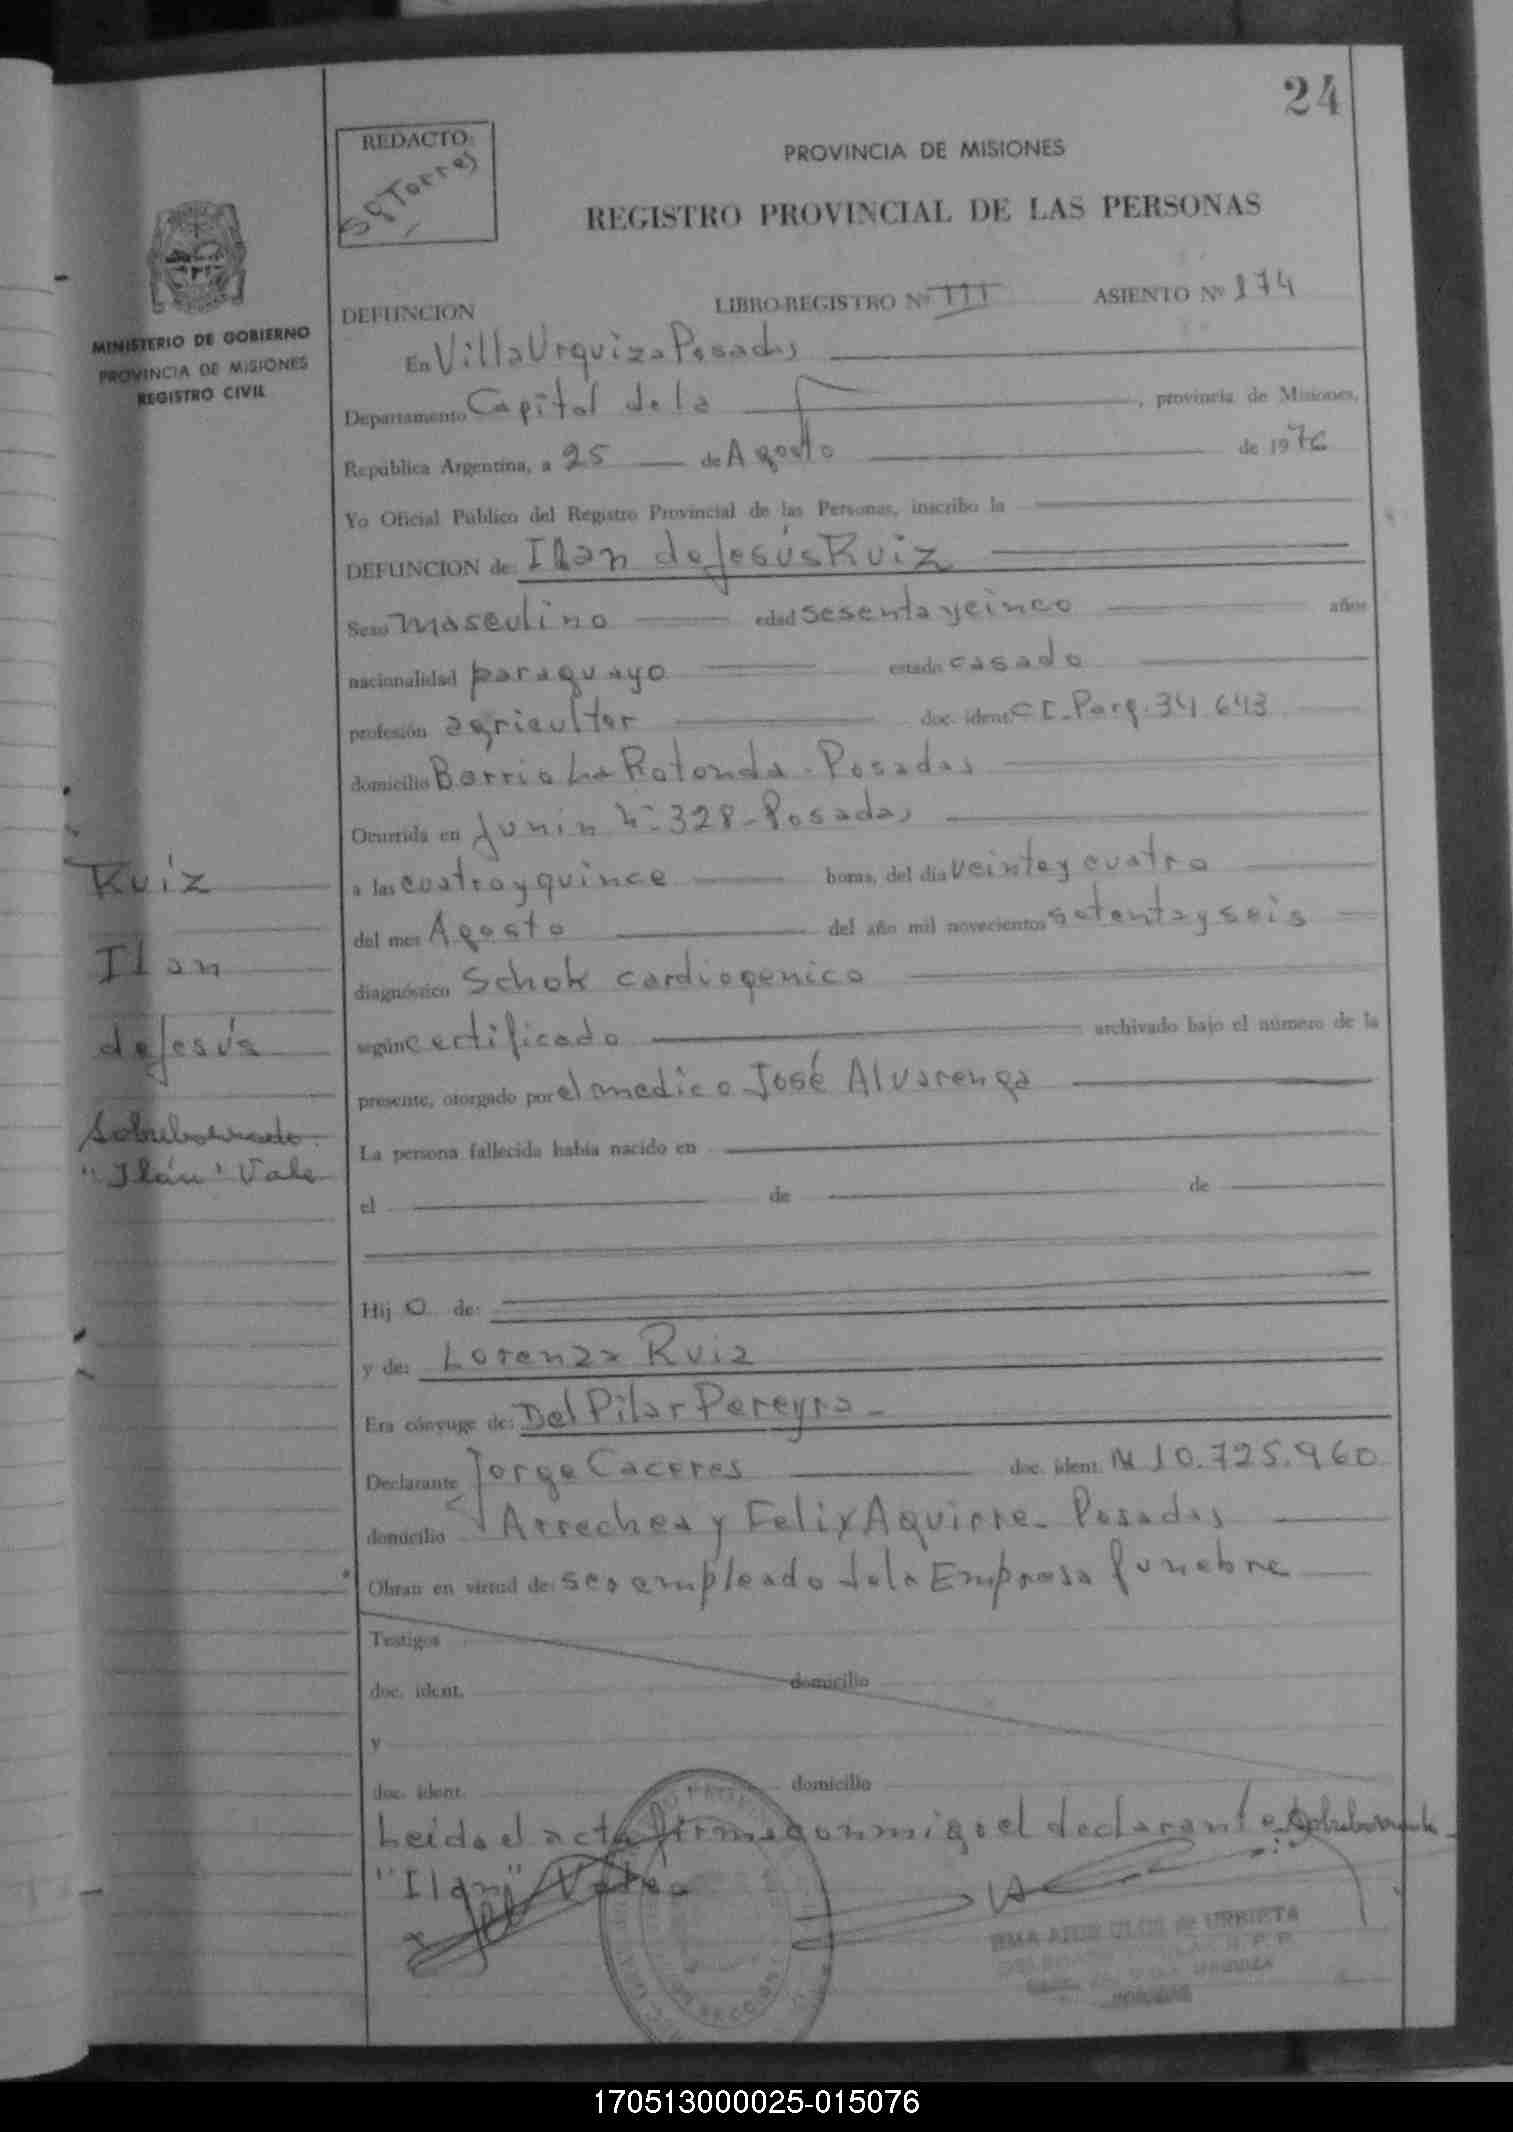 24
REDACTO:
Torres
PROVINCIA DE MISIONES
REGISTRO PROVINCIAL DE LAS PERSONAS
MINISTERIO DE GOBIERNO
PROVINCIA DE MISIONES
REGISTRO CIVIL
DEFUNCION LIBRO-REGISTRO Nº III ASIENTO Nº 174
En Villa Urquiza Posadas
Departamento Capital de la , provincia de Misiones,
República Argentina, a 25 de Agosto de 1976
Yo Oficial Público del Registro Provincial de las Personas, inscribo la
DEFUNCION de: Ilan de Jesús Ruiz
Sexo masculino edad sesenta y cinco años
nacionalidad paraguayo estado casado
profesión agricultor doc. ident. C I. Parg. 34.643
domicilio Barrio La Rotonda - Posadas
Ocurrida en Junin Nº 328 - Posadas
a las cuatro y quince horas, del día veinte y cuatro
del mes Agosto del año mil novecientos setenta y seis
diagnóstico Schok cardiogenico
según certificado archivado bajo el número de la
presente, otorgado por el medico José Alvarenga
La persona fallecida había nacido en
el de de
Hij o de:
y de: Lorenza Ruiz
Era cónyuge de: Del Pilar Pereyra -
Declarante Jorge Caceres doc. ident. M 10.725.960
domicilio Arrechea y Felix Aguirre - Posadas
Obran en virtud de: ser empleado de la Empresa funebre
Testigos
doc. ident. domicilio
y
doc. ident. domicilio
Leida el acta firma conmigo el declarante Sobreborrado
"Ilan" Vale
Ruiz
Ilan
de Jesús
Sobreborrado:
"Ilán" Vale
de URRIETA
170513000025-015076